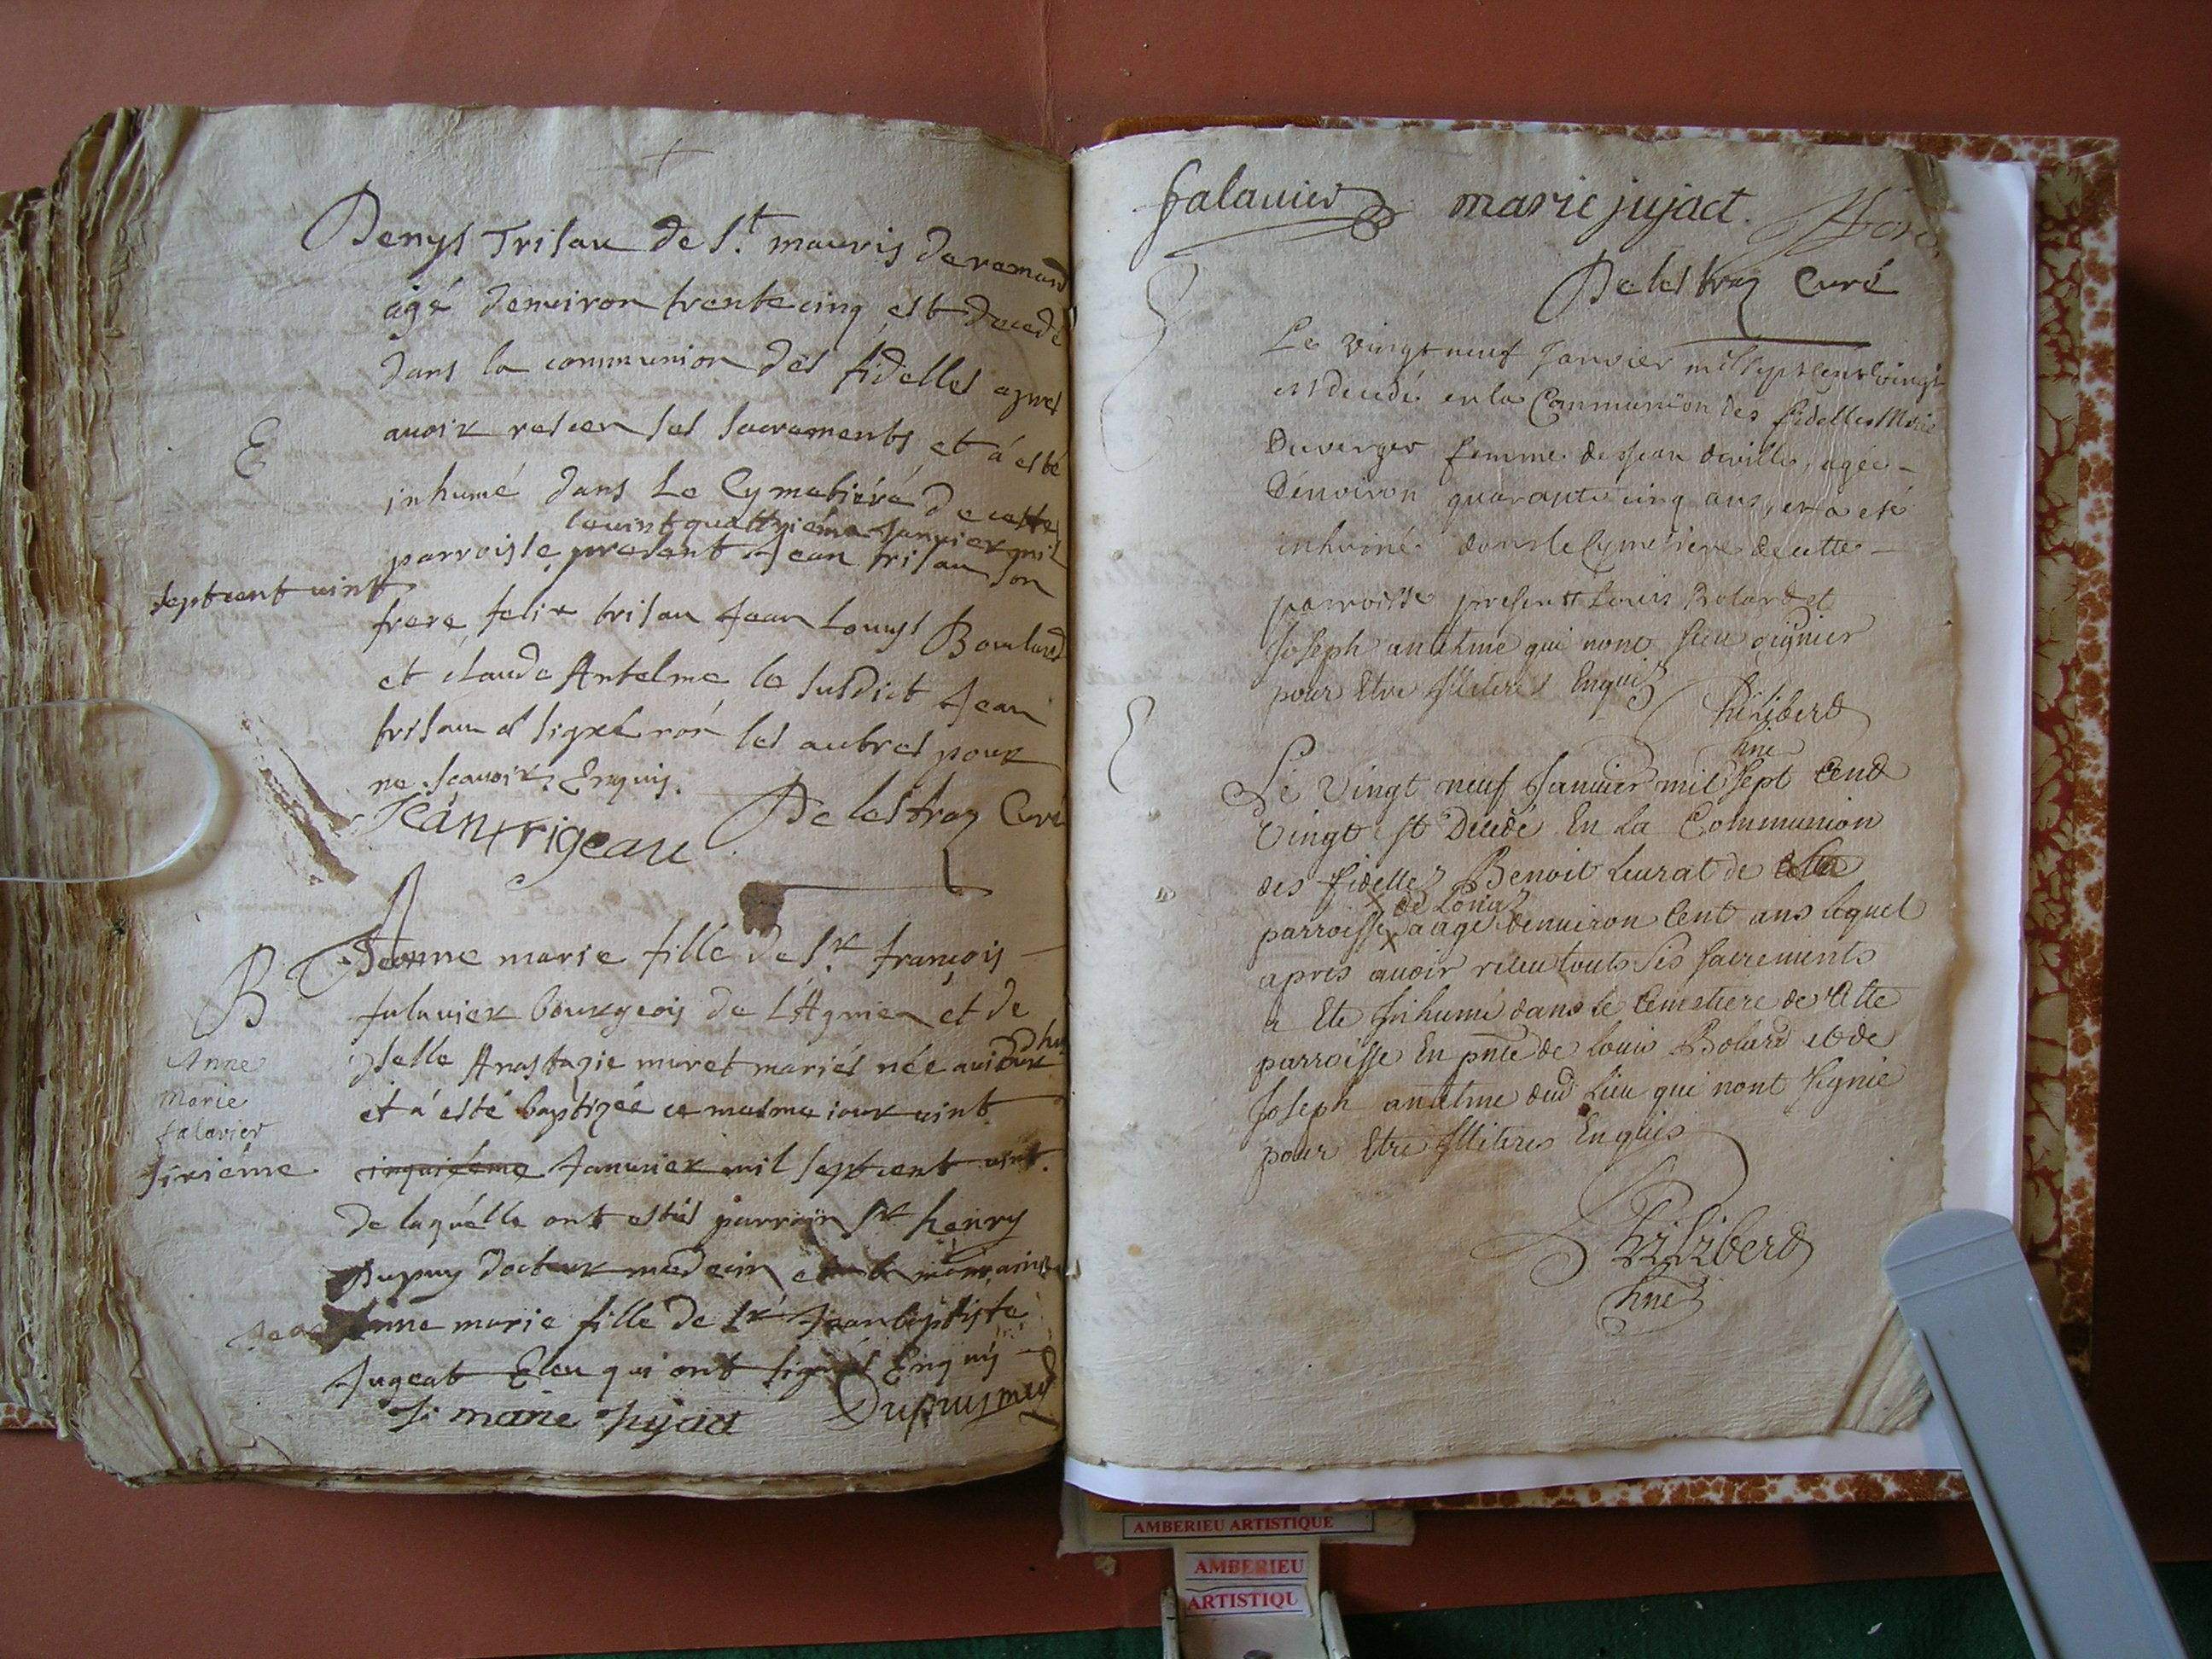 Denys Trisau de S.t mauris de remens
agé denuiron trente cinq est decedé
dans la communion des fidelles apres
auoir reseu ses sacrements et á esté
E
inhumé dans Le Cymetiéré de cette
le uint quattriéme Januier mil
parroisse present Jean trisau son
septcent uint
frere felix trisau Jean Louys Boulard
et claude Antelme le susdict Jean
trisau a signé non les autres pour
ne scauoir Enquis.
Jean trigeau De lestraz Curé
B Jeanne marie fille de S.r françois
falauier bourgeois de L'Agnieu et de
Anne
Marie
falavier
dselle Anastazie muret mariés née auiourdhuy
et á esté baptizée ce mesme iour uint
sixiéme
cinquiéme Januier mil septcent uint.
de laquélle ont estés parrain Sr henry
Dupuy docteur medecin et la marraine
Jeanne marie fille de Sr Jean baptiste
Jugeat Eleu qui ont signés Enquis
J. marie Jujact Dupuy med
falauier marie jujact.
De lestraz Curé
Le vingt neuf Janvier mil sept cent vingt
est decedé en la Communion des fidelles
Duverger femme de Jean deville, agée
Denviron quarante cinq ans, et a eté
inhumé dans le Cymetiere de cette
parroisse present Louis Bolard et
Joseph antelme qui nont sceu signier
pour Etre Illiteres Enquis
Philiberd
Le Vingt neuf Januier mil sept Cent
Vingt est Decedé En La Communion
des fidelles Benoit Leurat de cette
x de Loüis
parroisse x aagé denuiron Cent ans lequel
apres auoir receu touts ses sacrements
a Ete Inhumé dans le Cemetiere de Cette
parroisse En pnce de Louis Bolard et de
Joseph antelme dud Lieu qui nont signié
pour Etre Illiteres Enquis
Philiberd
AMBERIEU ARTISTIQUE
AMBERIEU
ARTISTIQU